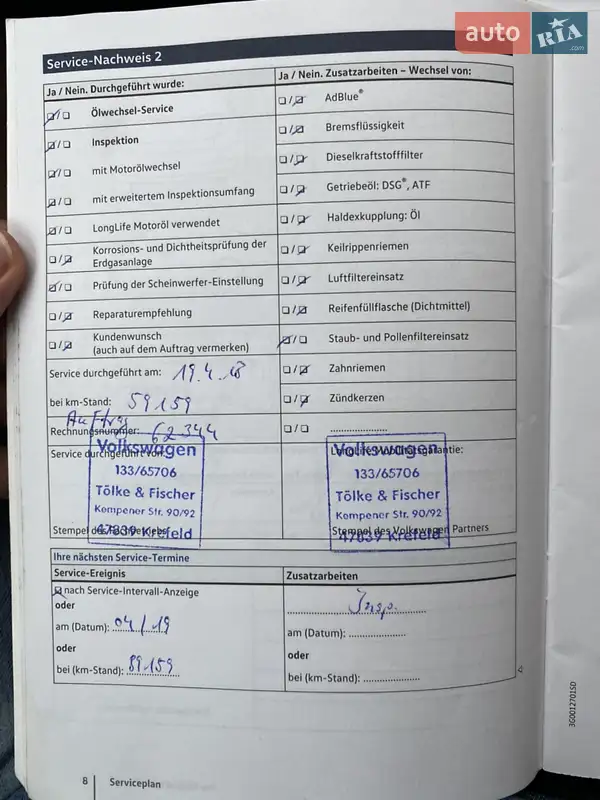 auto RIA .com
Service-Nachweis 2
Ja / Nein. Durchgeführt wurde:
Ölwechsel-Service
Inspektion
mit Motorölwechsel
mit erweitertem Inspektionsumfang
LongLife Motoröl verwendet
Korrosions- und Dichtheitsprüfung der
Erdgasanlage
Prüfung der Scheinwerfer-Einstellung
Reparaturempfehlung
Kundenwunsch
(auch auf dem Auftrag vermerken)
Service durchgeführt am: 19.4.18
bei km-Stand: 59159
Auftrag
Rechnungsnummer: 62344
Service durchgeführt von:
Volkswagen
133/65706
Tölke & Fischer
Kempener Str. 90/92
47839 Krefeld
Stempel des
Ja / Nein. Zusatzarbeiten – Wechsel von:
AdBlue®
Bremsflüssigkeit
Dieselkraftstofffilter
Getriebeöl: DSG®, ATF
Haldexkupplung: Öl
Keilrippenriemen
Luftfiltereinsatz
Reifenfüllflasche (Dichtmittel)
Staub- und Pollenfiltereinsatz
Zahnriemen
Zündkerzen
....................
LongLife Mobilitätsgarantie:
Volkswagen
133/65706
Tölke & Fischer
Kempener Str. 90/92
47839 Krefeld
Stempel des Volkswagen Partners
Ihre nächsten Service-Termine
Service-Ereignis
nach Service-Intervall-Anzeige
oder
am (Datum): 04/19
oder
bei (km-Stand): 89159
Zusatzarbeiten
Insp.
am (Datum): ....................
oder
bei (km-Stand): ....................
3G0012701SD
8 Serviceplan